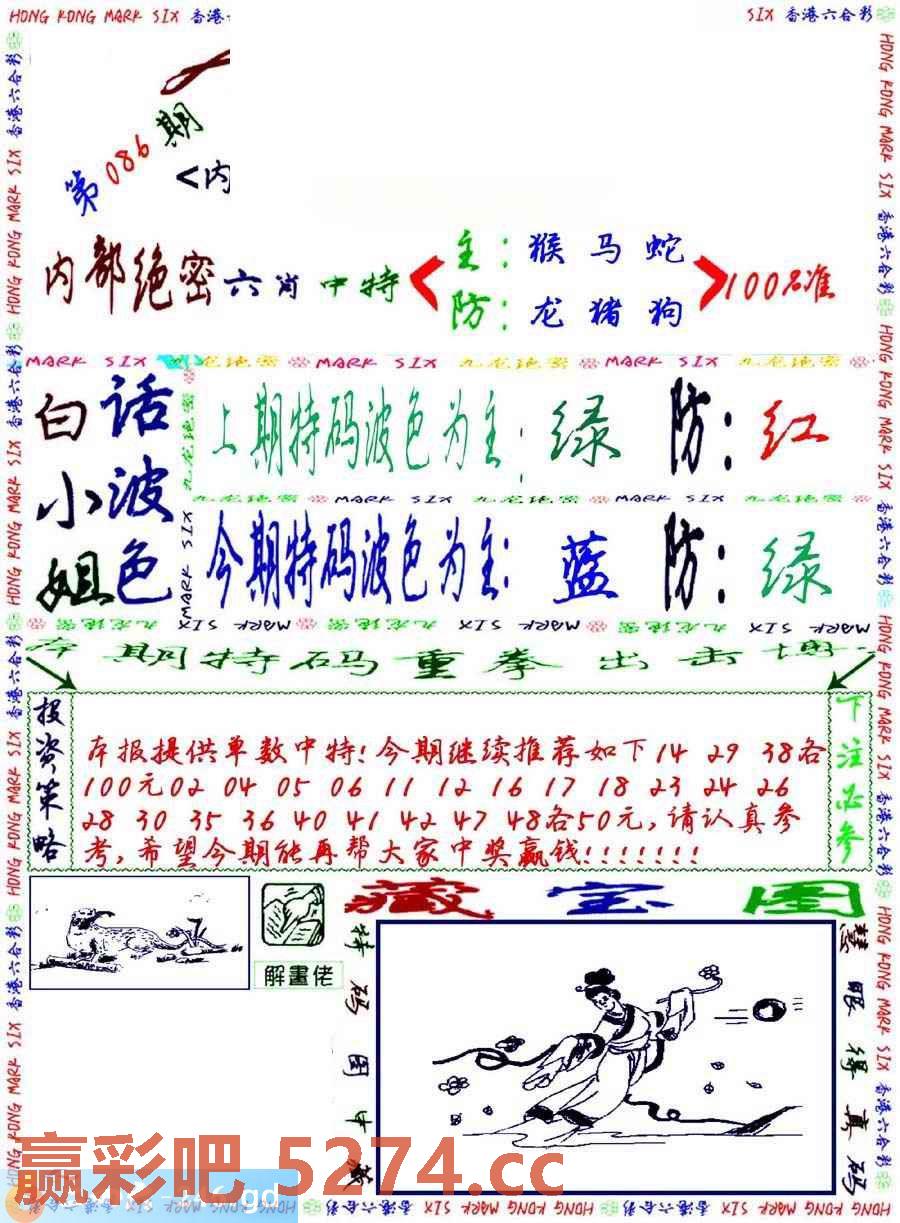 HONG KONG MARK SIX 香港
SIX 香港六合彩
第086期
<内
内部绝密六肖中特
主：猴马蛇
防：龙猪狗
100%准
MARK SIX 九龙绝密 MARK SIX 九龙绝密 MARK SIX 九龙绝密
白话
小波
姐色
上期特码波色为主：绿 防：红
九龙绝密 MARK SIX 九龙绝密 MARK SIX 九龙绝密
今期特码波色为主：蓝 防：绿
九龙绝密 MARK SIX 九龙绝密 MARK SIX 九龙绝密 MARK SIX
本期特码重拳出击
投资策略
本报提供单数中特!今期继续推荐如下14 29 38各
100元02 04 05 06 11 12 16 17 18 23 24 26
28 30 35 36 40 41 42 47 48各50元,请认真参
考,希望今期能再帮大家中奖赢钱!!!!!!!
下注必参
解畫佬
藏宝图
特码图中
慧眼得真码
赢彩吧 5274.cc
HONG KONG MARK SIX 香港六合彩